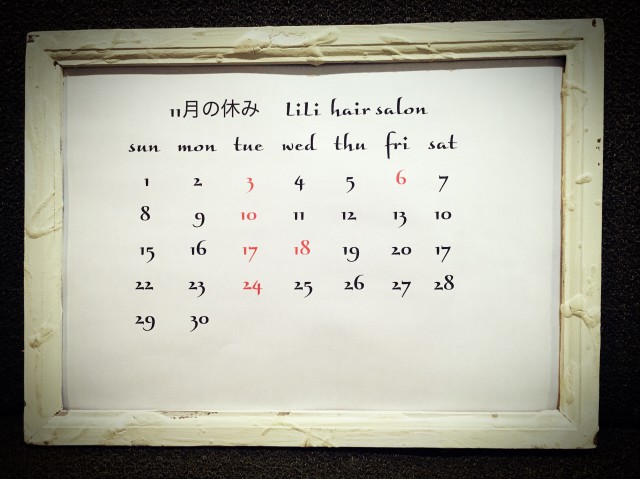 11月の休み LiLi hair salon
sun mon tue wed thu fri sat
1 2 3 4 5 6 7
8 9 10 11 12 13 10
15 16 17 18 19 20 17
22 23 24 25 26 27 28
29 30